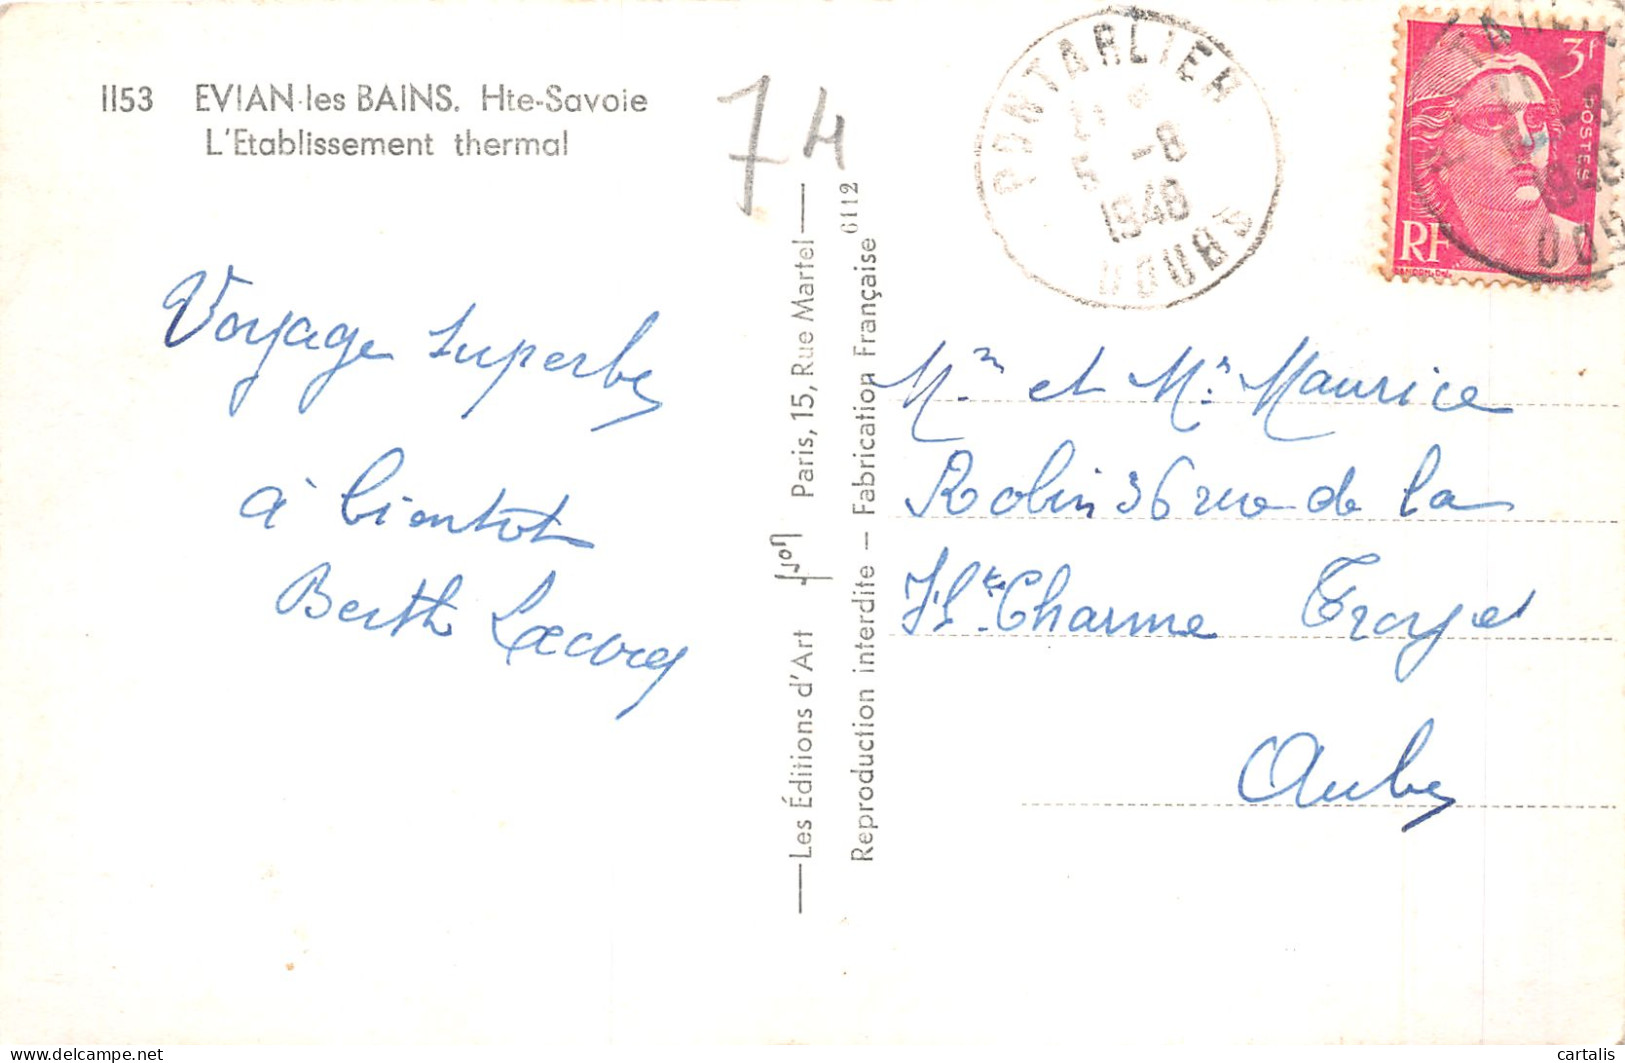 1153 EVIAN-les BAINS. Hte-Savoie
L'Etablissement thermal
74
Voyage superbe
à bientot
Berth Lecorq
Les Éditions d'Art Yvon Paris, 15, Rue Martel
Reproduction interdite — Fabrication Française 6112
PONTARLIER
5 -8
1948
DOUBS
3F
POSTES
RF
1948
DOUB
Mr et Me Maurice
Robin 36 rue de la
Hte Charme Troyes
Aube
delcampe.net
cartalis